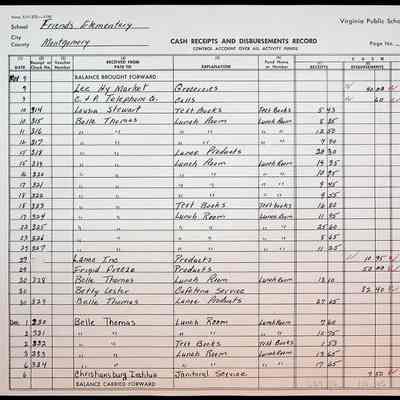 School Friends Elementary
Virginia Public Scho
City
County Montgomery
CASH RECEIPTS AND DISBURSEMENTS RECORD
CONTROL ACCOUNT OVER ALL ACTIVITY FUNDS
Page No.
(1) (2) (3) (4) (5) (6) (7)
Date Receipt or Check No. Voucher Number RECEIVED FROM PAID TO EXPLANATION Fund Name or Number RECEIPTS DISBURSEMENTS
Nov 9 BALANCE BROUGHT FORWARD
9 Lee Hy Market Groceries
9 C. & P. Telephone Co. Calls 60
10 314 Louisa Stewart Text Books Text Books 5 43
10 315 Belle Thomas Lunch Room Lunch Room 8 25
11 316 " " " " " 12 50
16 317 " " " " "
15 318 " " Lance Products 20 30
15 319 " " Lunch Room Lunch Room 14 95
16 320 " " " " " 10 95
17 321 " " " " " 9 45
18 322 " " " " " 9 55
18 323 " " Text Books Text books 16 80
19 324 " " Lunch Room Lunch Room 11 95
22 325 " " " " " 25 60
23 326 " " " " " 8 65
29 327 " " " " " 11 25
29 Lance Inc Products 10 95
29 Frigid Freeze Products
30 328 Belle Thomas Lunch Room Lunch Room 13 10
30 Betty Lester Cafeteria Service 82 40
30 329 Belle Thomas Lance Products 27 65
Dec 1 330 Belle Thomas Lunch Room Lunch Room 7 60
2 331 " " " " " 10 75
2 332 " " Text Books Text Books 1 53
3 333 " " Lunch Room Lunch Room 19 65
6 334 " " " " " 17 65
6 Christiansburg Institute Janitoral Service 7 50
BALANCE CARRIED FORWARD